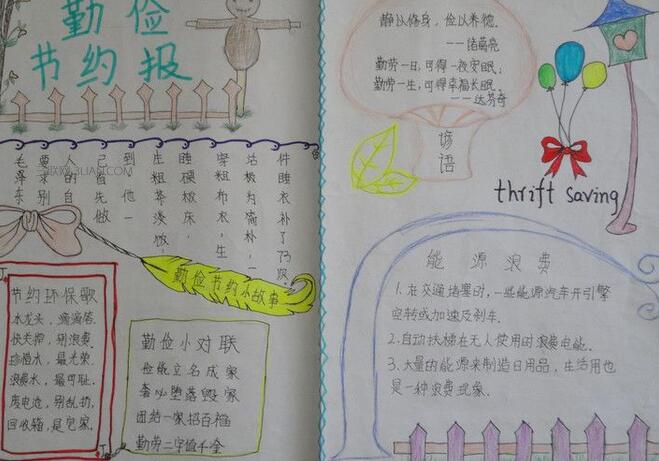 勤俭
节约报
毛泽东
要求别
人的自
己首先
到他做一
庄粗茶淡饭,
睡硬板床,
穿粗布衣,生
活极为简朴,一
件睡衣补了73次
勤俭节约小故事
节约环保歌
水龙头,滴滴答.
快关掉,别浪费.
珍惜水,最光荣.
浪费水,最可耻.
废电池,别乱扔,
回收箱,是它家.
勤俭小对联
俭成立名成家
奢必堕落毁家
团结一家招百福
勤劳二字值千金
静以修身,俭以养德.
——诸葛亮
勤劳一日,可得一夜安眠;
勤劳一生,可得幸福长眠.
——达芬奇
谚语
thrift saving
能源浪费
1.在交通堵塞时,一些能源汽车开引擎
空转或加速及刹车.
2.自动扶梯在无人使用时浪费电能.
3.大量的能源来制造日用品,生活用也
是一种浪费现象.